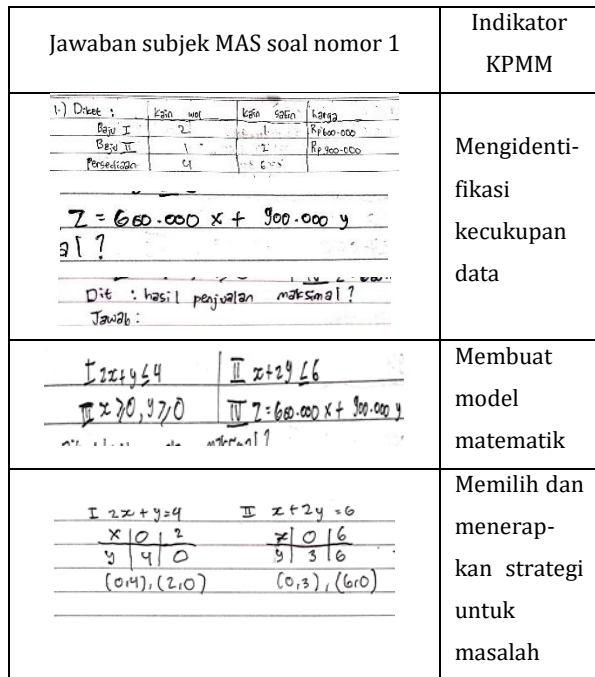 Jawaban subjek MAS soal nomor 1
Indikator
KPMM
1.) Diket :
Kain wol
Kain satin
harga
Baju I
2
1
Rp 600.000
Baju II
1
2
Rp 900.000
Persediaan
4
6
Z = 600.000 x + 900.000 y
al ?
Dit : hasil penjualan maksimal ?
Jawab :
Mengidenti-
fikasi
kecukupan
data
I 2x+y≤4
II x+2y ≤6
III x ≥0, y≥0
IV Z = 600.000 x + 900.000 y
Membuat
model
matematik
I 2x + y = 4
x | 0 | 2
y | 4 | 0
(0,4), (2,0)
II x + 2y = 6
x | 0 | 6
y | 3 | 6
(0,3), (6,0)
Memilih dan
menerap-
kan strategi
untuk
masalah